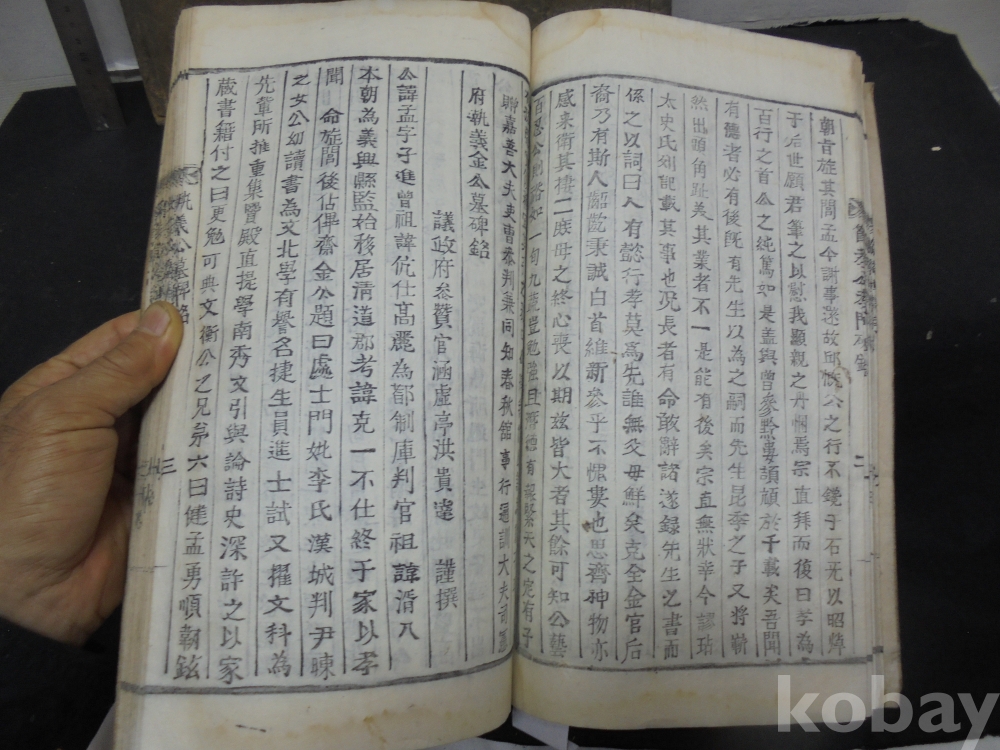 朝旨旌其閭孟今謝事遂故邱惟公之行不鐫于石无以昭㪅
于后世願君筆之以慰我顯親之丹悃焉宗直拜而復曰孝為
百行之首公之純篤如是盖與曾參黔婁頡頏於千載矣吾聞
有德者必有後旣有先生以為之嗣而先生昆季之子又将嶄
然出頭角趾美其業者不一是能有後矣宗直無狀幸今認玷
太史氏列能載其事也况長者有命敢辭諸遂録先生之書而
係之以詞曰人有懿行孝莫為先誰無父母鮮矣克全金官后
裔乃有斯人齠齔秉誠白首維新參乎不愧婁也思齊神物亦
感来衛其棲二庶母之終心喪以期玆皆大者其餘可知公藝
百忍公則裕如一旬九
嘉善大夫吏曹叅判兼同知春秋館事行通訓大夫司
府執義金公墓碑銘
議政府叅贊官涵虚亭洪貴達 謹撰
公諱孟字子進曾祖諱伉仕高麗為都制庫判官祖諱湑入
本朝為義興縣監始移居清道郡考諱克一不仕終于家以孝
聞 命旌閭後佔俾齋金公題曰處士門妣李氏漢城判尹暕
之女公幼讀書為文北學有譽名捷生員進士試又擢文科為
先軰所推重集賢殿直提學南秀文引與論詩史深許之以家
蔵書籍付之曰更勉可典文衡公之兄弟六曰健孟勇順靭鉉
執義公墓碑銘
三
二
kobay